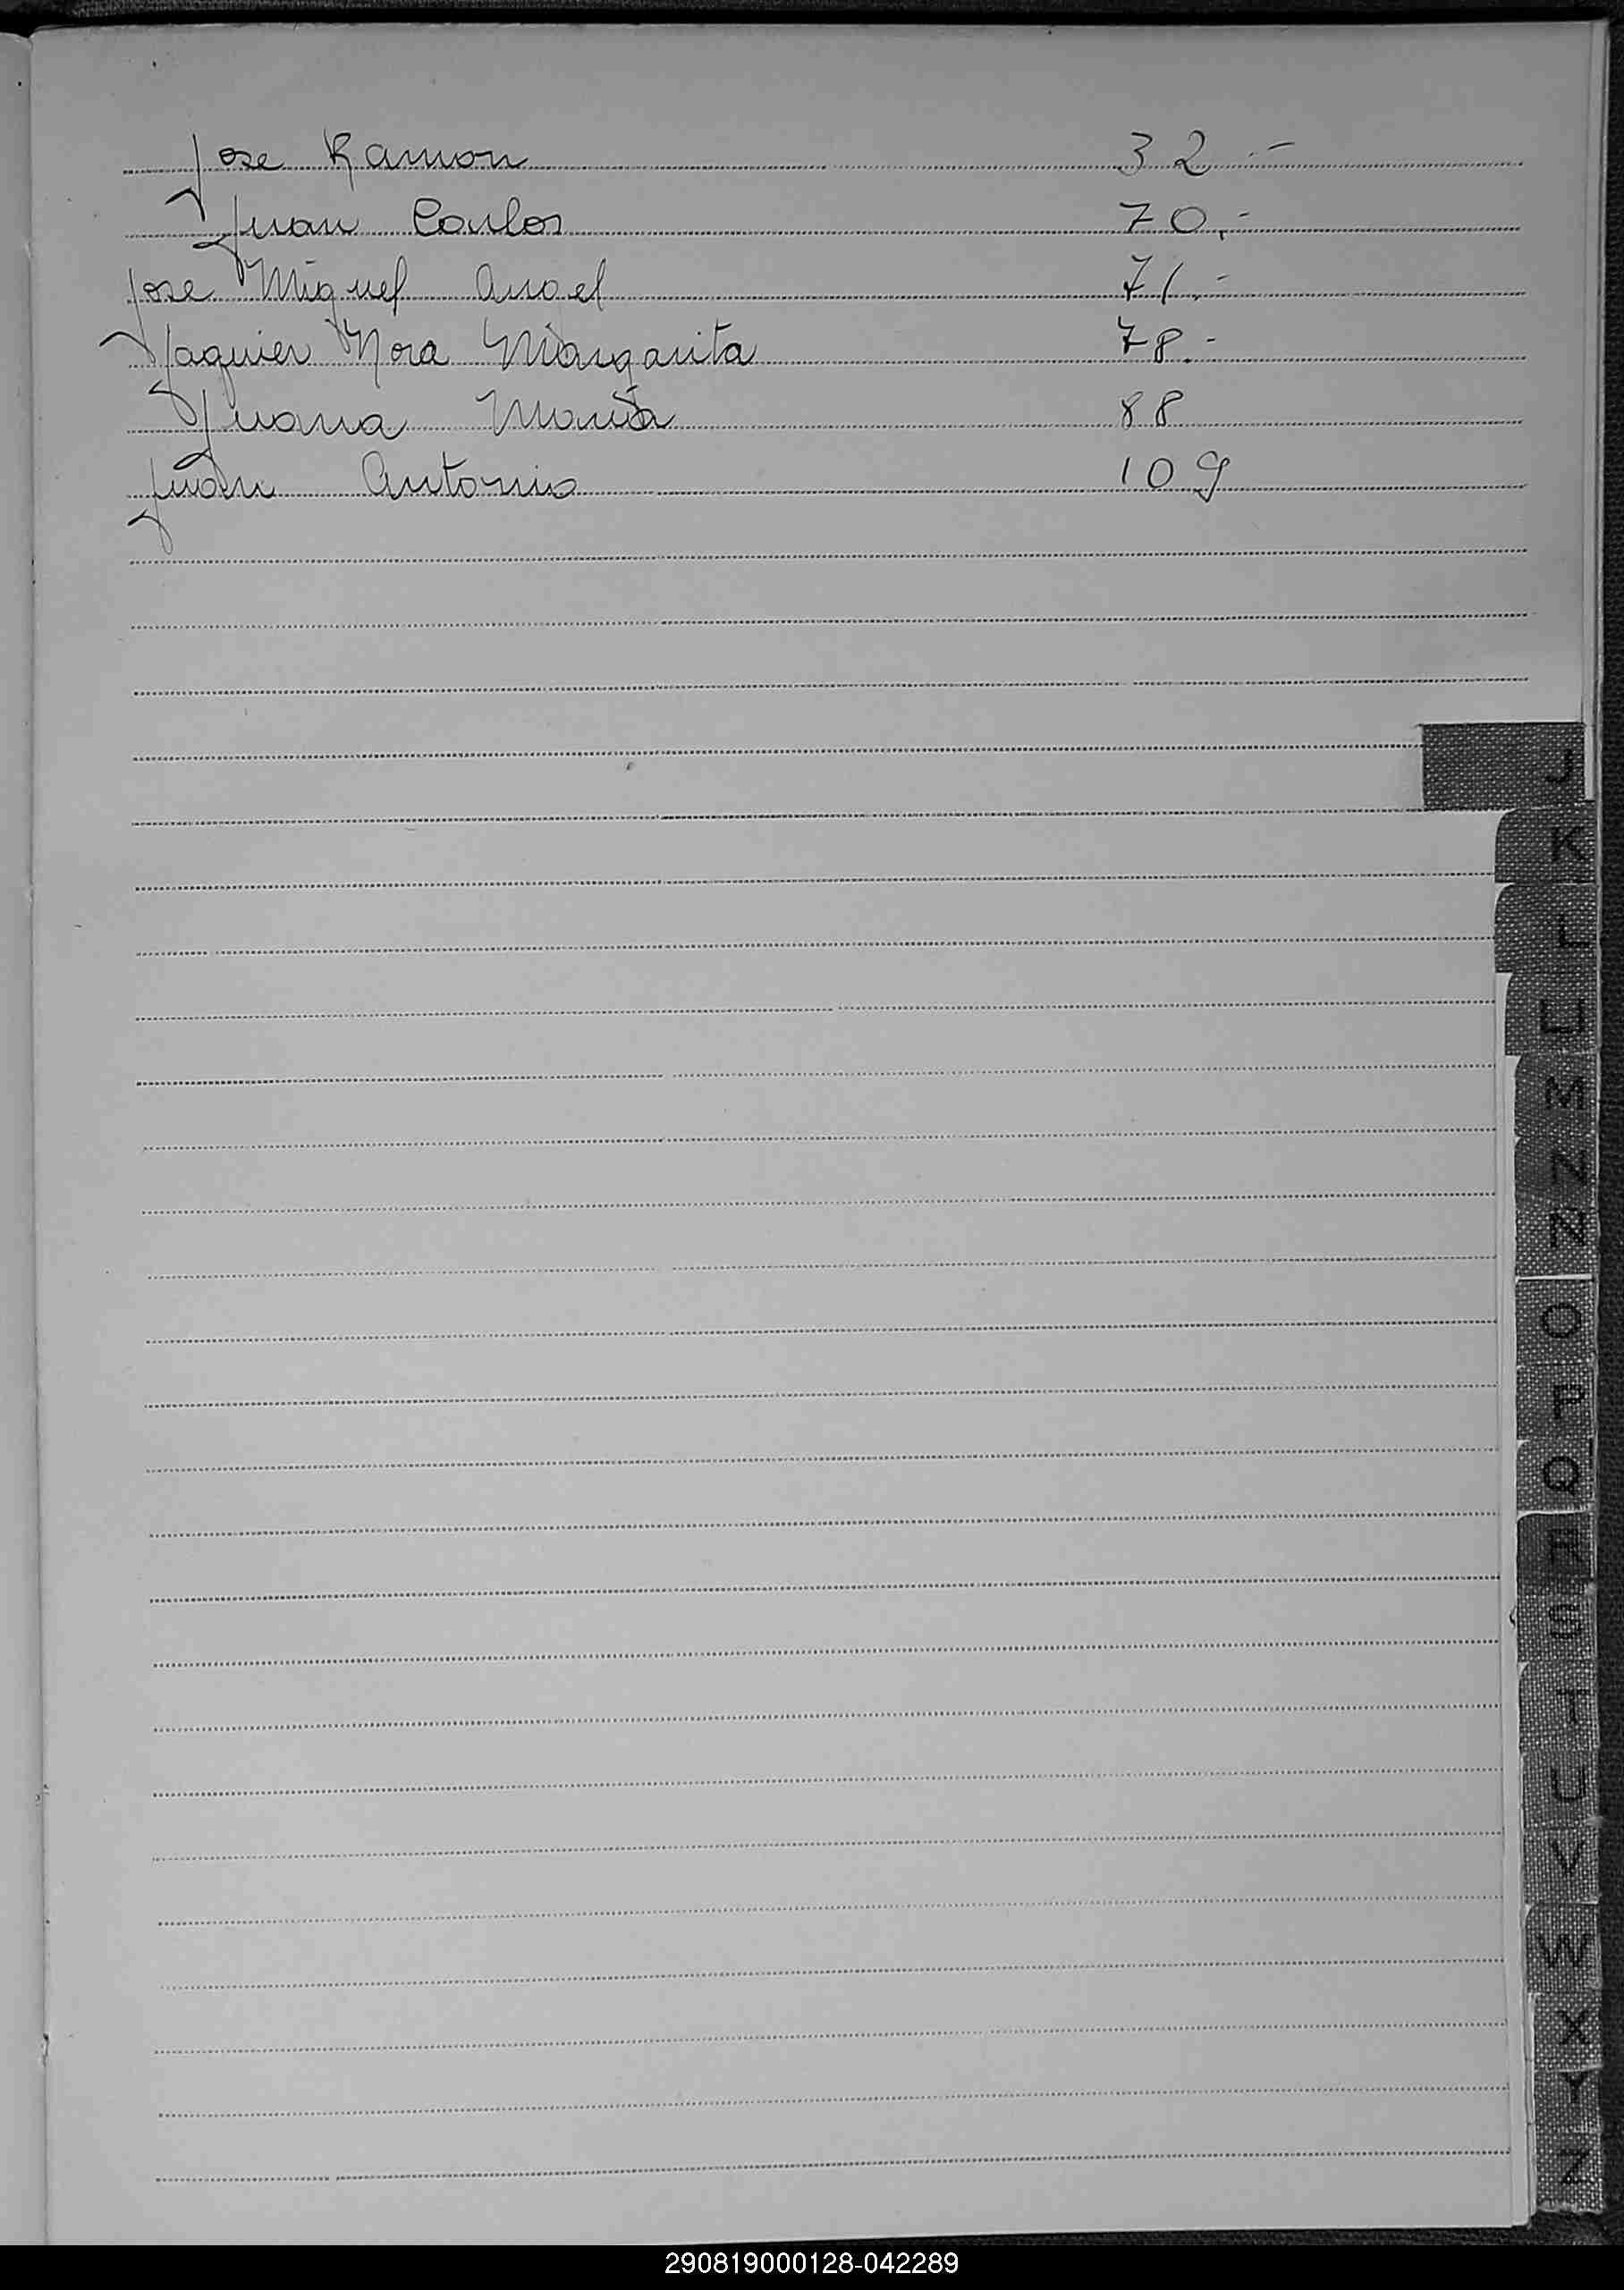 Jose Ramon 32.-
Juan Carlos 70.-
Jose Miguel Angel 71.-
Jaquier Nora Margarita 78.-
Juana Maria 88
Juan Antonio 109
J
K
L
LL
M
N
Ñ
O
P
Q
R
S
T
U
V
W
X
Y
Z
290819000128-042289